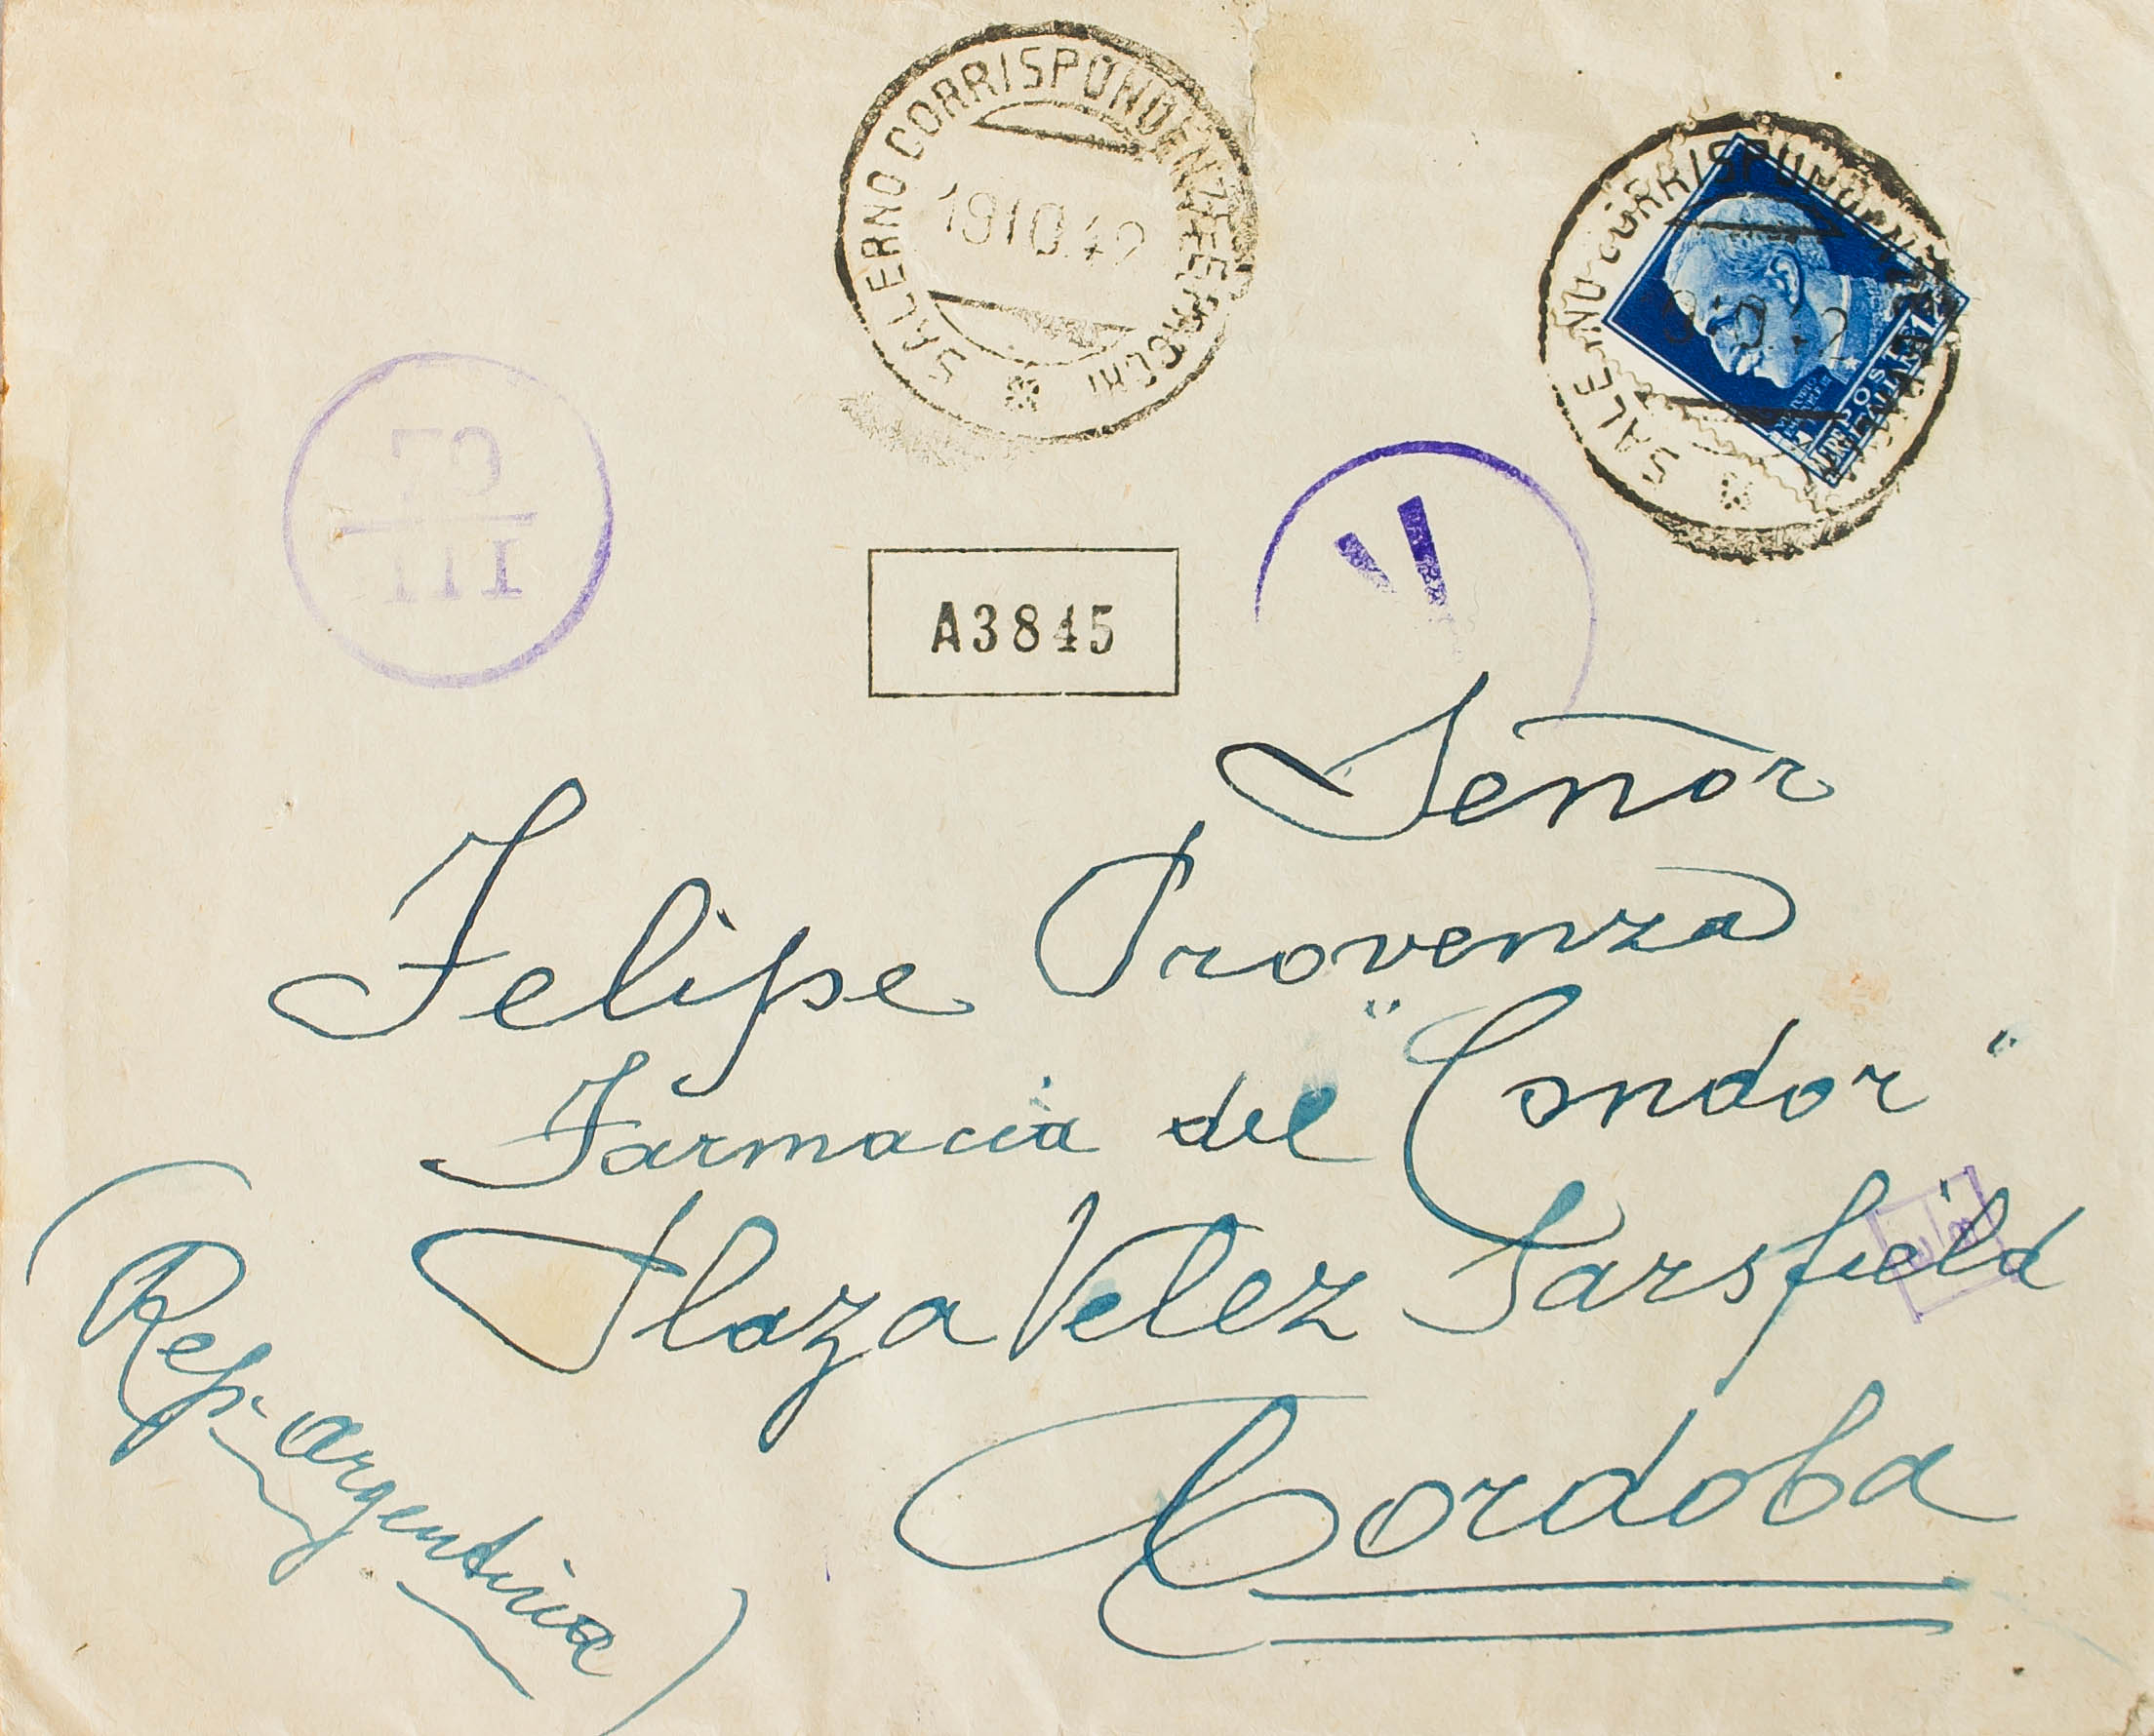 SALERNO CORRISPONDENZE E PACCHI
19 10.42
POSTE
ITALIANE
III
A3845
V
Señor
Felipe Provenza
Farmacia del "Condor"
Plaza Velez Sarsfield
Cordoba
(Rep. Argentina)